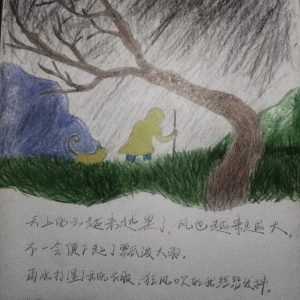 天上的云越来越黑了,风也越来越大。
不一会便下起了瓢泼大雨。
雨水打湿了我的衣服,狂风吹的我瑟瑟发抖。